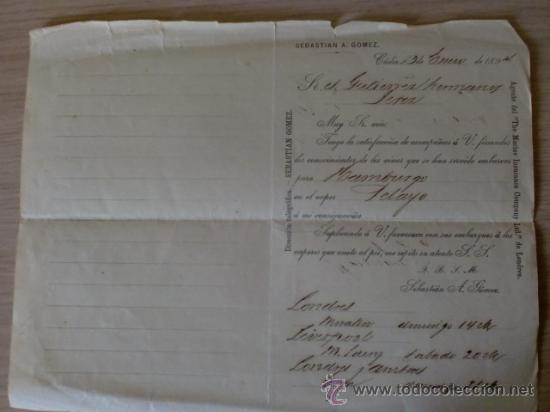 SEBASTIAN A. GOMEZ.
Cádiz 13 de Enero de 189
Gutierrez Hermanos
Jerez
Muy Sr. mio:
Tengo la satisfacción de acompañar á V. firmados
los conocimientos de los vinos que se han servido embarcar
para Hamburgo
en el vapor Pelayo
á mi consignación.
Suplicando á V. favorezca con sus embarques á los
vapores que anoto al pié, me repito su atento S. S.
Q. B. S. M.
Sebastián A. Gómez.
Londres
domingo 14
Liverpool
sabado 20
Londres
Dirección telegráfica.—SEBASTIAN GOMEZ.
Agente del "The Marine Insurance Company Ltd." de Londres.
todocoleccion